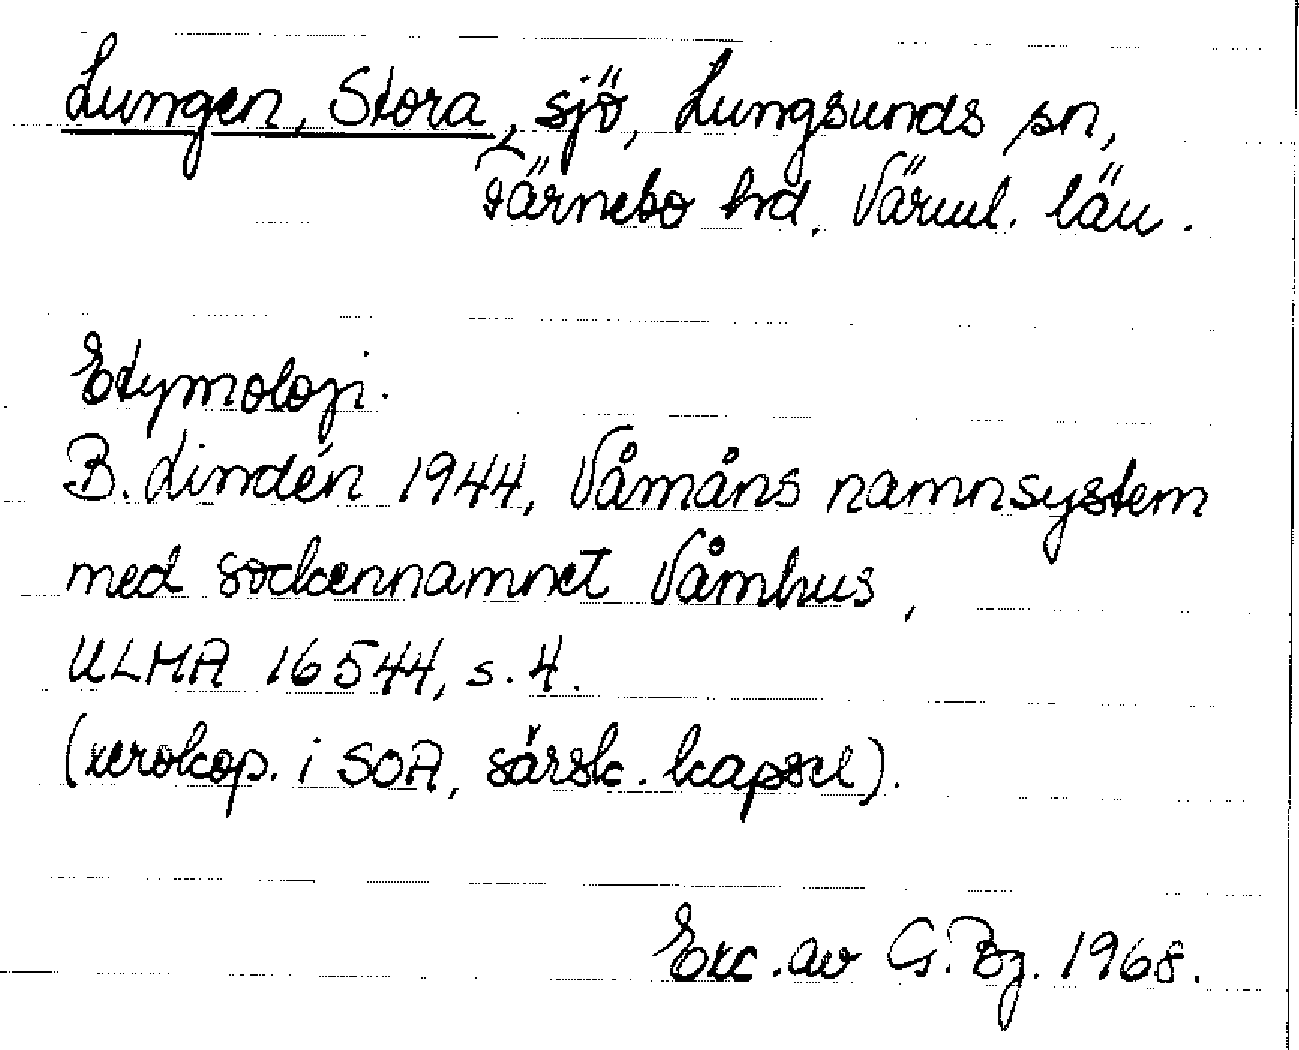 Lungen, Stora, sjö, Lungsunds sn,
Färnebo hd. Värml. län.
Etymologi.
B. Lindén 1944, Våmåns namnsystem
med sockennamnet Våmhus,
ULMA 16544, s. 4.
(xerokop. i SOA, särsk. kapsel).
Exc. av G. Bg. 1968.